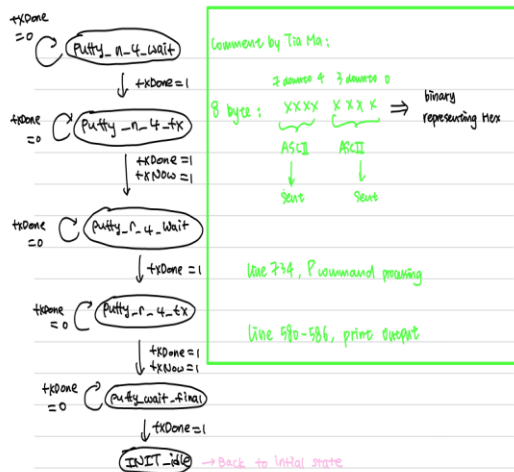 txDone
=0
putty_n_4_wait
txDone=1
txDone
=0
putty_n_4_tx
txDone=1
txNow=1
txDone
=0
putty_r_4_wait
txDone=1
txDone
=0
putty_r_4_tx
txDone=1
txNow=1
txDone
=0
putty_wait_final
txDone=1
INIT_idle → Back to intial state
Comment by Tia Ma:
7 downto 4 3 downto 0
8 byte: xxxx xxxx ⇒ binary
representing Hex
ASCII ASCII
Sent Sent
line 734, P command processing
line 580-586, print output